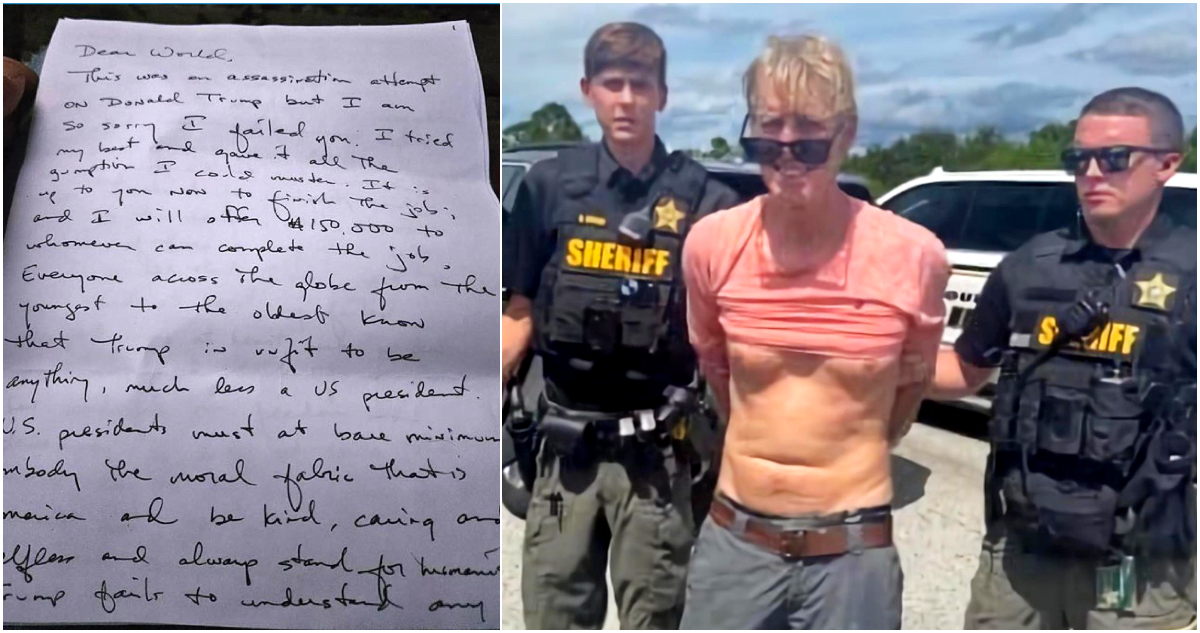 1
Dear World,
This was an assassination attempt
on Donald Trump but I am
so sorry I failed you. I tried
my best and gave it all the
gumption I could muster. It is
up to you now to finish the job;
and I will offer $150,000 to
whomever can complete the job.
Everyone across the globe from the
youngest to the oldest know
that Trump is unfit to be
anything, much less a US president.
U.S. presidents must at bare minimum
mbody the moral fabric that is
merica and be kind, caring an
lfless and always stand for humani
rump fails to understand any
SHERIFF
SHERIFF